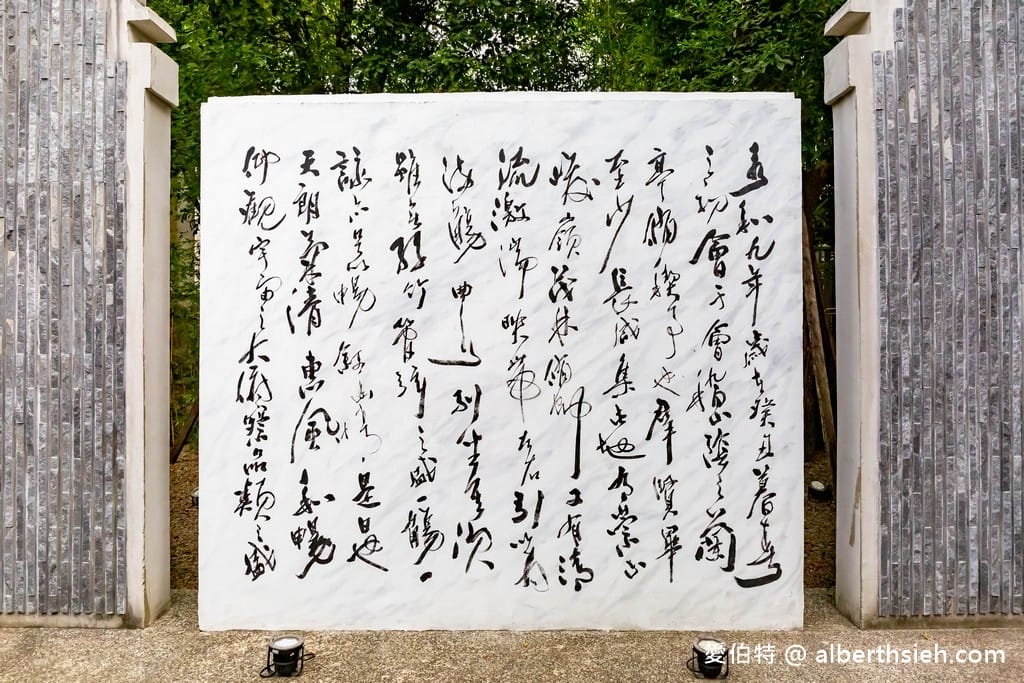 永和九年歲在癸丑暮春
之初會于會稽山陰之蘭
亭脩禊事也群賢畢
至少長咸集此地有崇山
峻嶺茂林脩竹又有清
流激湍映帶左右引以為
流觴曲水列坐其次
雖無絲竹管弦之盛一觴一
詠亦足以暢敘幽情是日也
天朗氣清惠風和暢
仰觀宇宙之大俯察品類之盛
愛伯特 @ alberthsieh.com